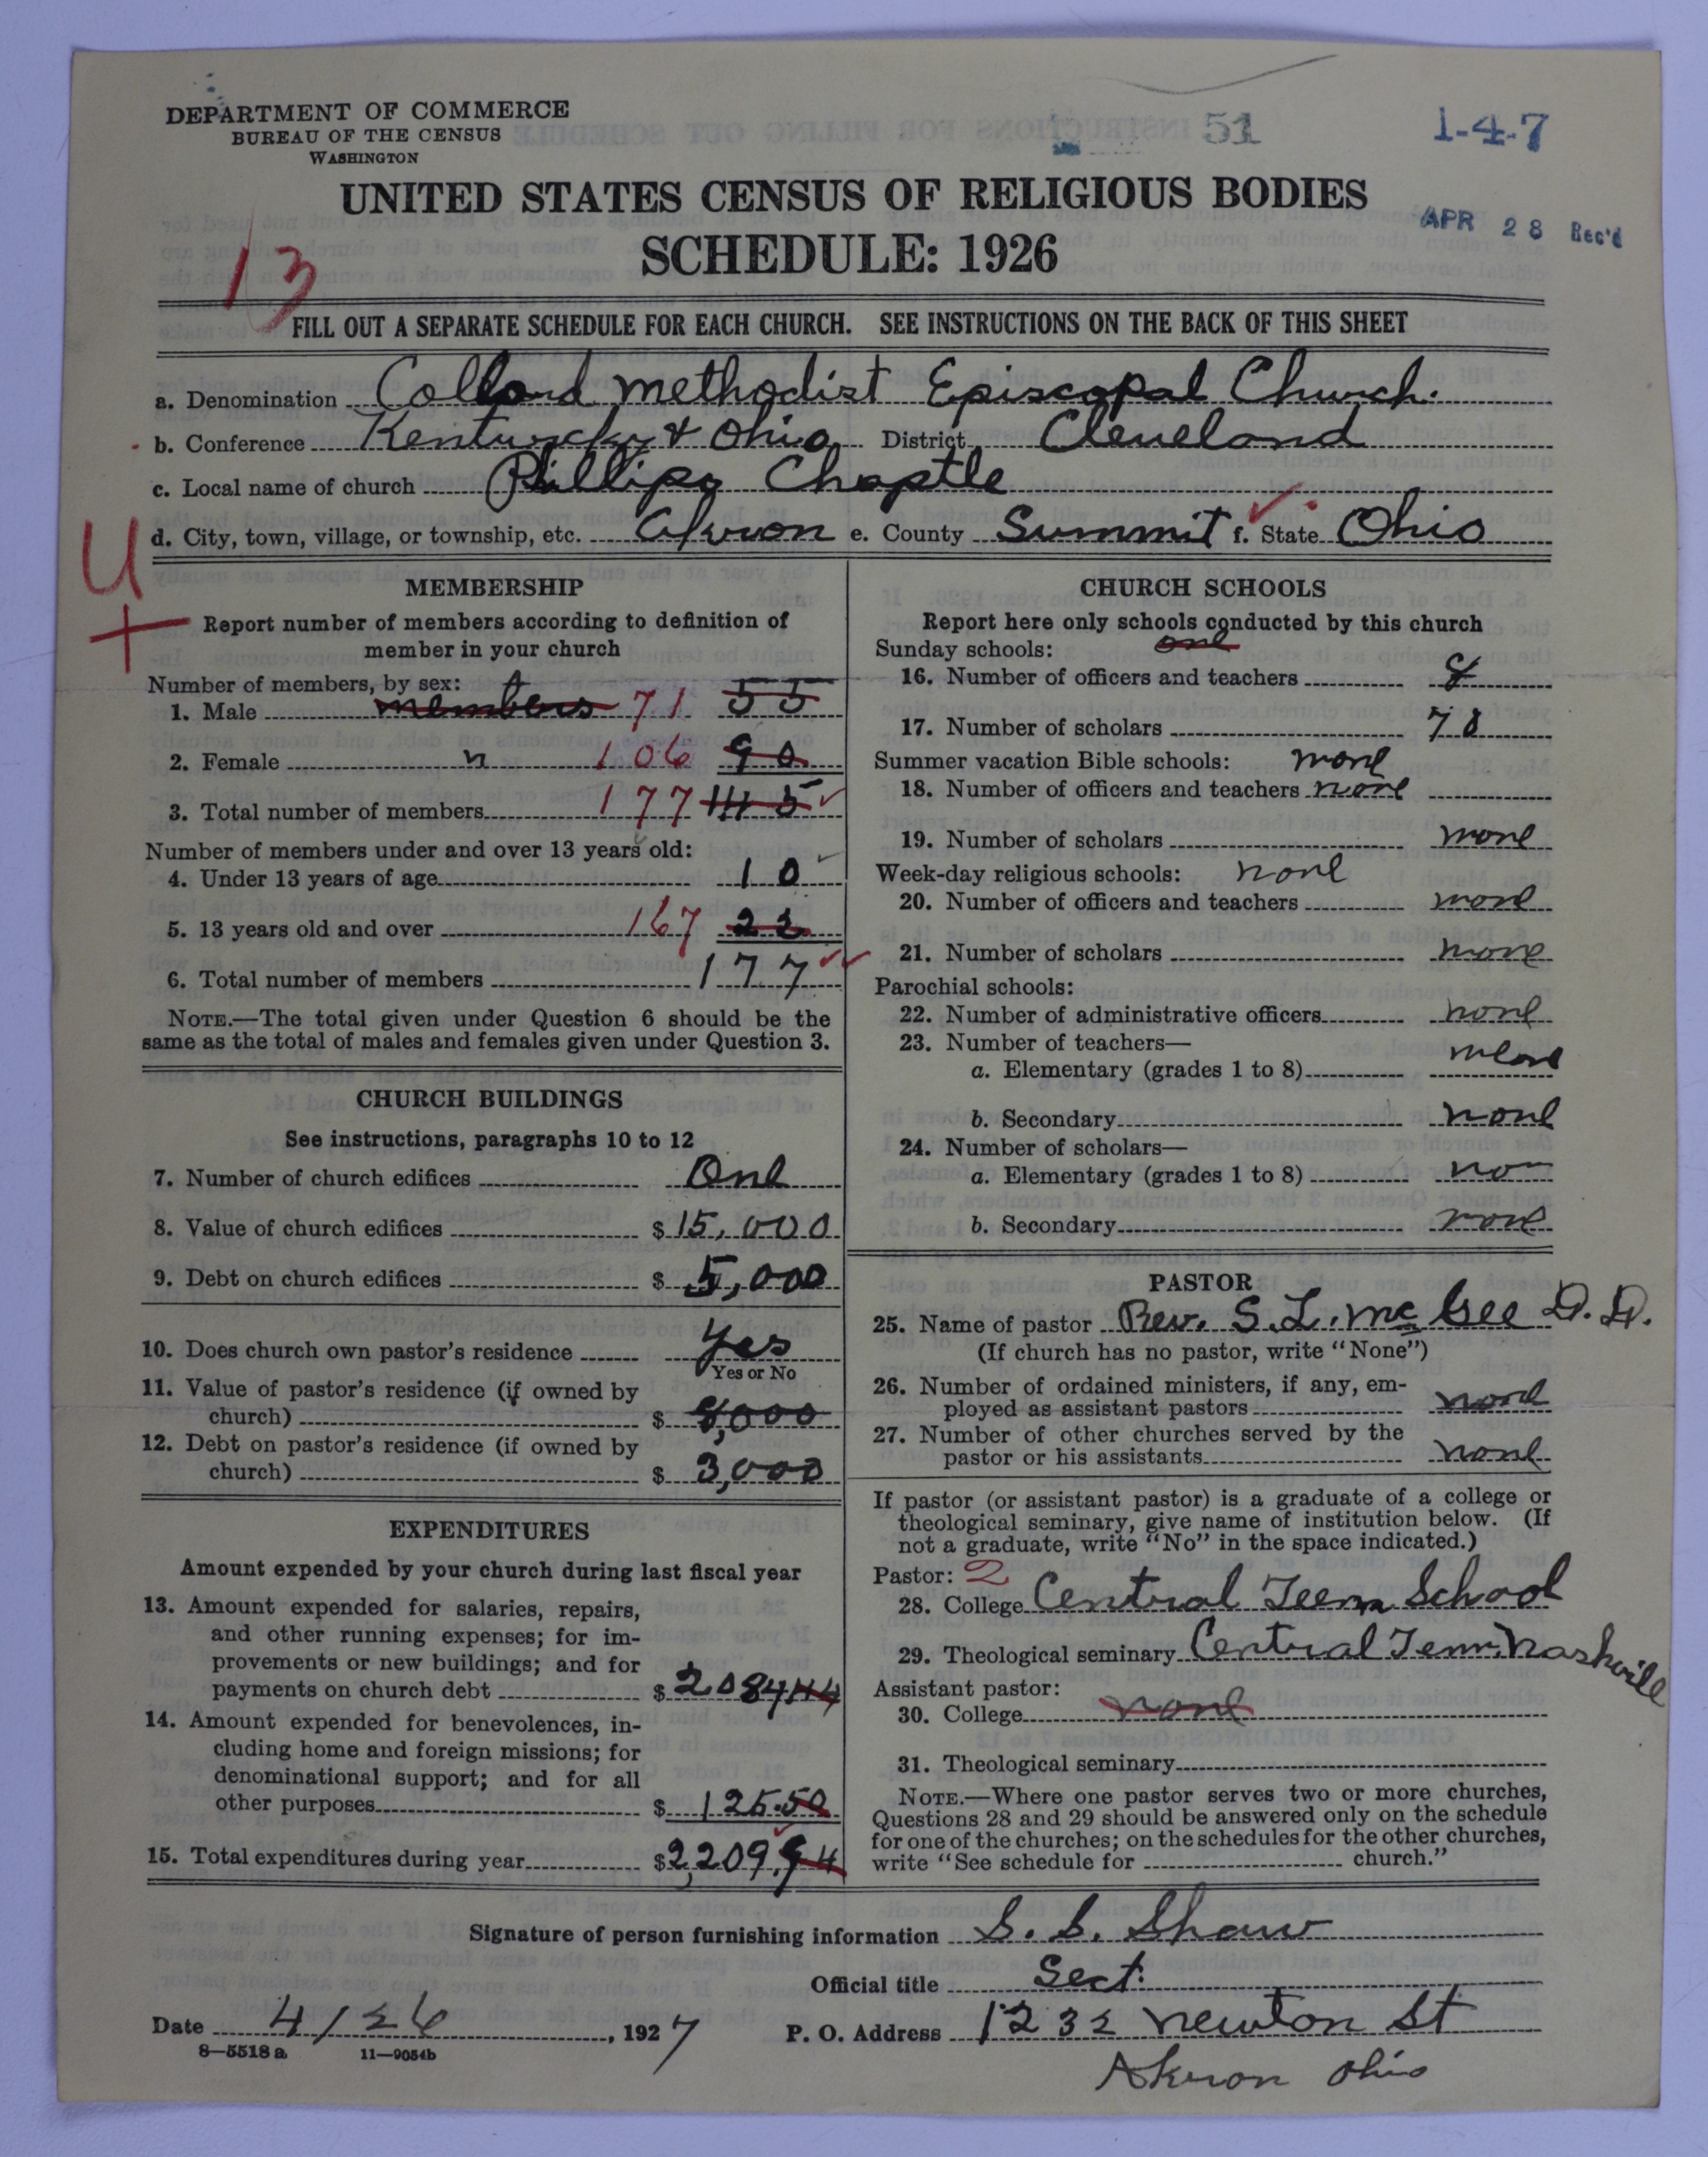 DEPARTMENT OF COMMERCE
BUREAU OF THE CENSUS
WASHINGTON
51
1-4-7
UNITED STATES CENSUS OF RELIGIOUS BODIES
SCHEDULE: 1926
APR 28 Rec'd
13
FILL OUT A SEPARATE SCHEDULE FOR EACH CHURCH. SEE INSTRUCTIONS ON THE BACK OF THIS SHEET
a. Denomination Collord Methodist Episcopal Church.
b. Conference Kentuncky & Ohio District Cleveland
c. Local name of church Phillips Chaptle
d. City, town, village, or township, etc. Akron e. County Summit f. State Ohio
U
+
MEMBERSHIP
Report number of members according to definition of
member in your church
Number of members, by sex:
1. Male members 71 55
2. Female " 106 90
3. Total number of members 177 145
Number of members under and over 13 years old:
4. Under 13 years of age 10
5. 13 years old and over 167 22
6. Total number of members 177
NOTE.—The total given under Question 6 should be the
same as the total of males and females given under Question 3.
CHURCH BUILDINGS
See instructions, paragraphs 10 to 12
7. Number of church edifices One
8. Value of church edifices $15,000
9. Debt on church edifices $5,000
10. Does church own pastor's residence Yes
Yes or No
11. Value of pastor's residence (if owned by
church) $ 8,000
12. Debt on pastor's residence (if owned by
church) $ 3,000
EXPENDITURES
Amount expended by your church during last fiscal year
13. Amount expended for salaries, repairs,
and other running expenses; for im-
provements or new buildings; and for
payments on church debt $2084 44
14. Amount expended for benevolences, in-
cluding home and foreign missions; for
denominational support; and for all
other purposes $ 125.50
15. Total expenditures during year $2,209.94
CHURCH SCHOOLS
Report here only schools conducted by this church
Sunday schools: one
16. Number of officers and teachers 8
17. Number of scholars 70
Summer vacation Bible schools: none
18. Number of officers and teachers none
19. Number of scholars none
Week-day religious schools: none
20. Number of officers and teachers none
21. Number of scholars none
Parochial schools:
22. Number of administrative officers none
23. Number of teachers—
a. Elementary (grades 1 to 8) none
b. Secondary none
24. Number of scholars—
a. Elementary (grades 1 to 8) non
b. Secondary none
PASTOR
25. Name of pastor Rev. S. L. McGee D. D.
(If church has no pastor, write "None")
26. Number of ordained ministers, if any, em-
ployed as assistant pastors none
27. Number of other churches served by the
pastor or his assistants none
If pastor (or assistant pastor) is a graduate of a college or
theological seminary, give name of institution below. (If
not a graduate, write "No" in the space indicated.)
Pastor: 2
28. College Central Teenn School
29. Theological seminary Central Tenn. Nashville
Assistant pastor:
30. College none
31. Theological seminary
NOTE.—Where one pastor serves two or more churches,
Questions 28 and 29 should be answered only on the schedule
for one of the churches; on the schedules for the other churches,
write "See schedule for church."
Signature of person furnishing information S. S. Shaw
Official title Sect.
Date 4/26, 1927 P. O. Address 1232 Newton St
8—5518a 11—9054b
Akron Ohio